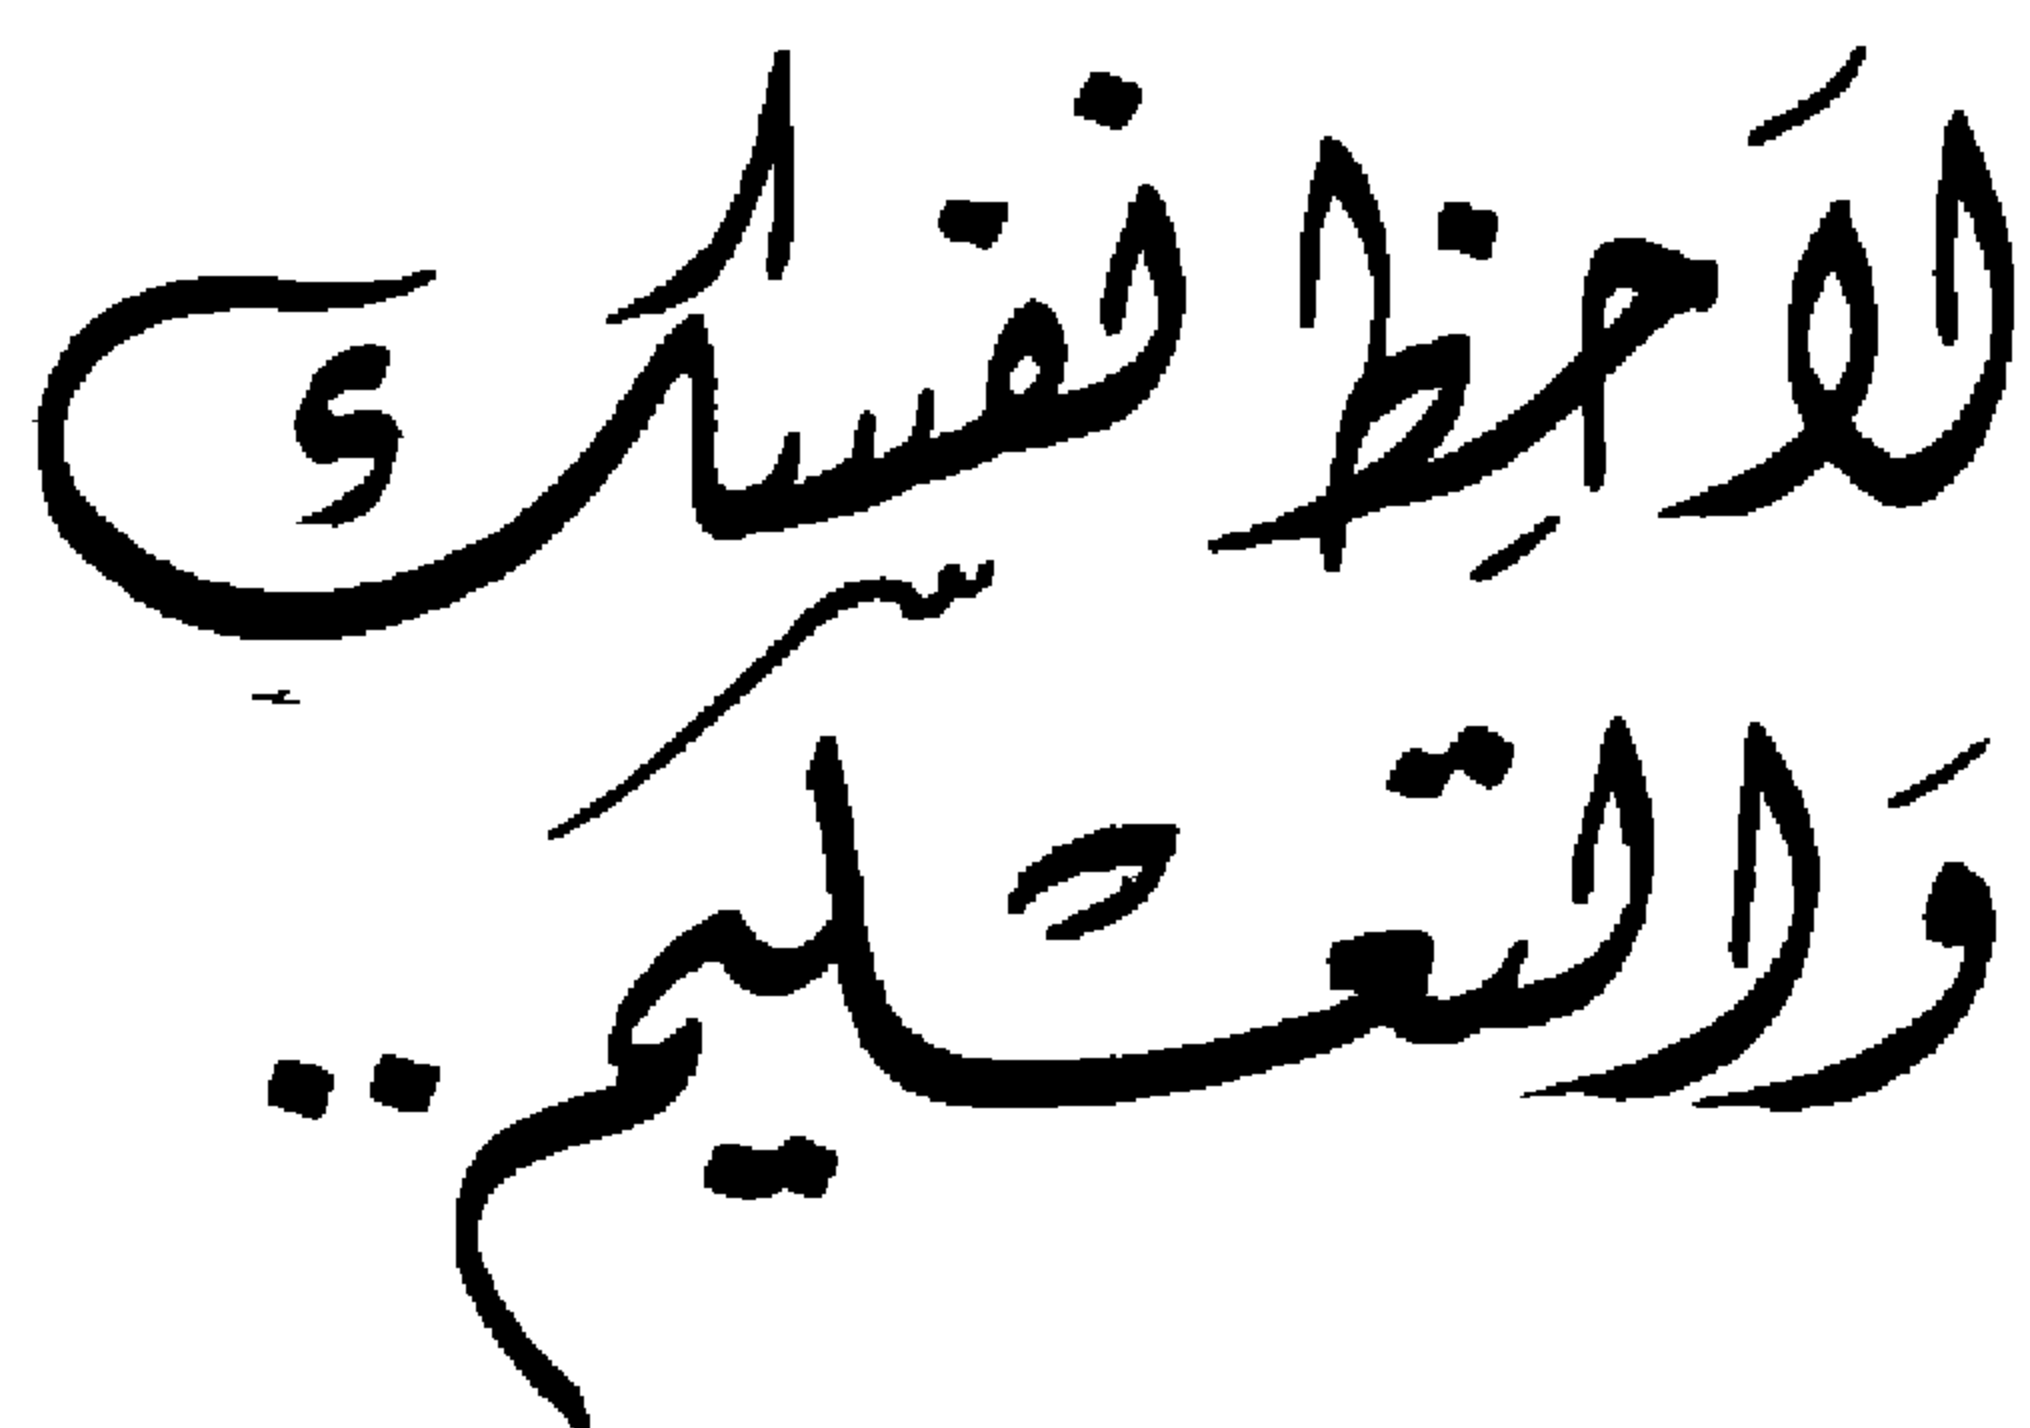 لَاحِظ نفسك
وَالتعليم ..